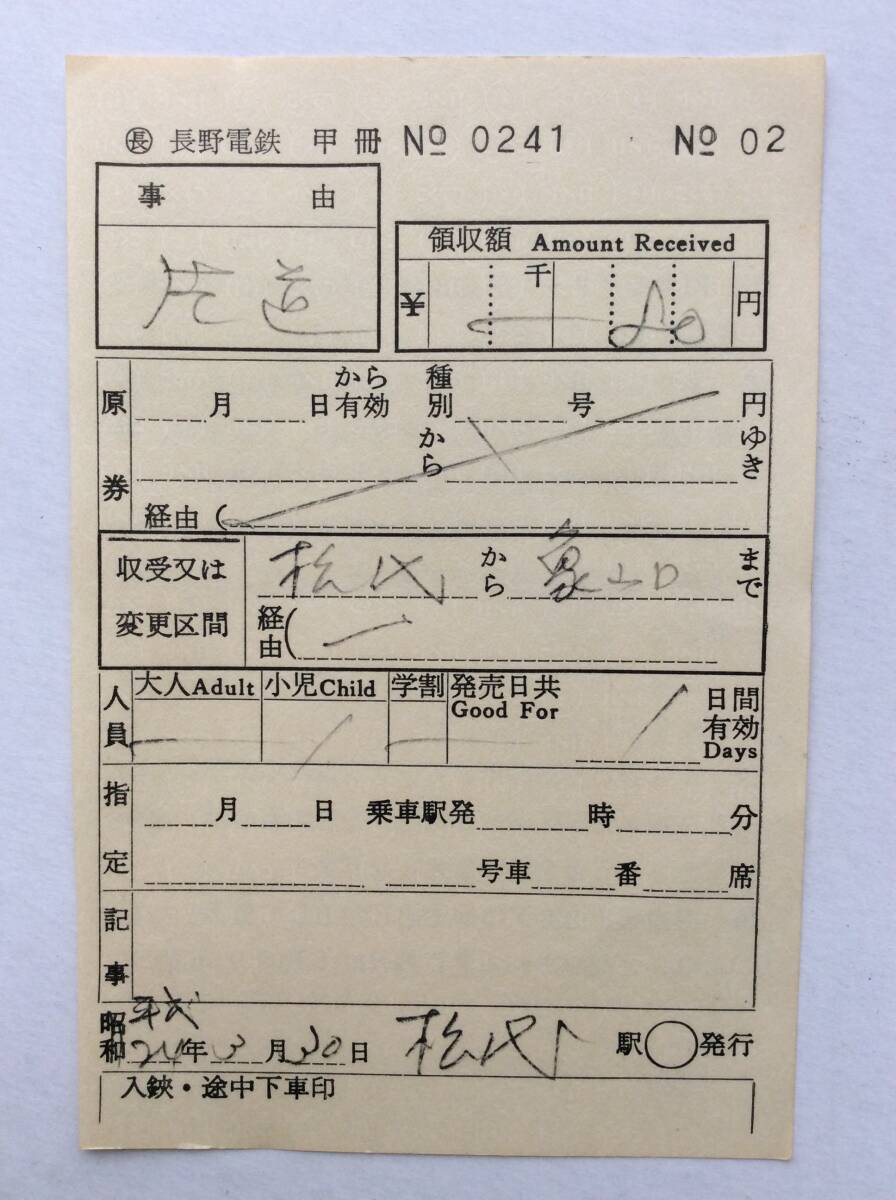 ㊧ 長野電鉄 甲冊 No 0241 No 02
事由
片道
領収額 Amount Received
千
¥ 80 円
原券
月 日 から有効 種別 号 円
から ゆき
経由 (
収受又は変更区間
松代 から 象山口 まで
経由 (
人員
大人 Adult 小児 Child 学割 発売日共 Good For 1 日間有効 Days
1
指定
月 日 乗車駅発 時 分
号車 番 席
記事
昭和 平成 24年 3月 30日 松代 駅 発行
入鋏・途中下車印